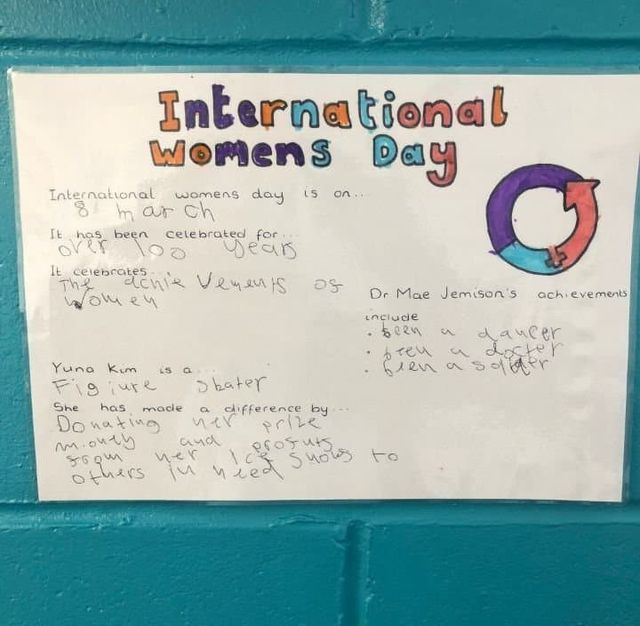 International
Womens Day
International womens day is on...
8 march
It has been celebrated for...
over 100 years
It celebrates...
The achievements of
women
Dr Mae Jemison's achievements
include
• been a dancer
• been a docter
• been a
Yuna Kim is a...
Figiure skater
She has made a difference by...
Donating her prize
money and profuts
from her Ice Shows to
others in need